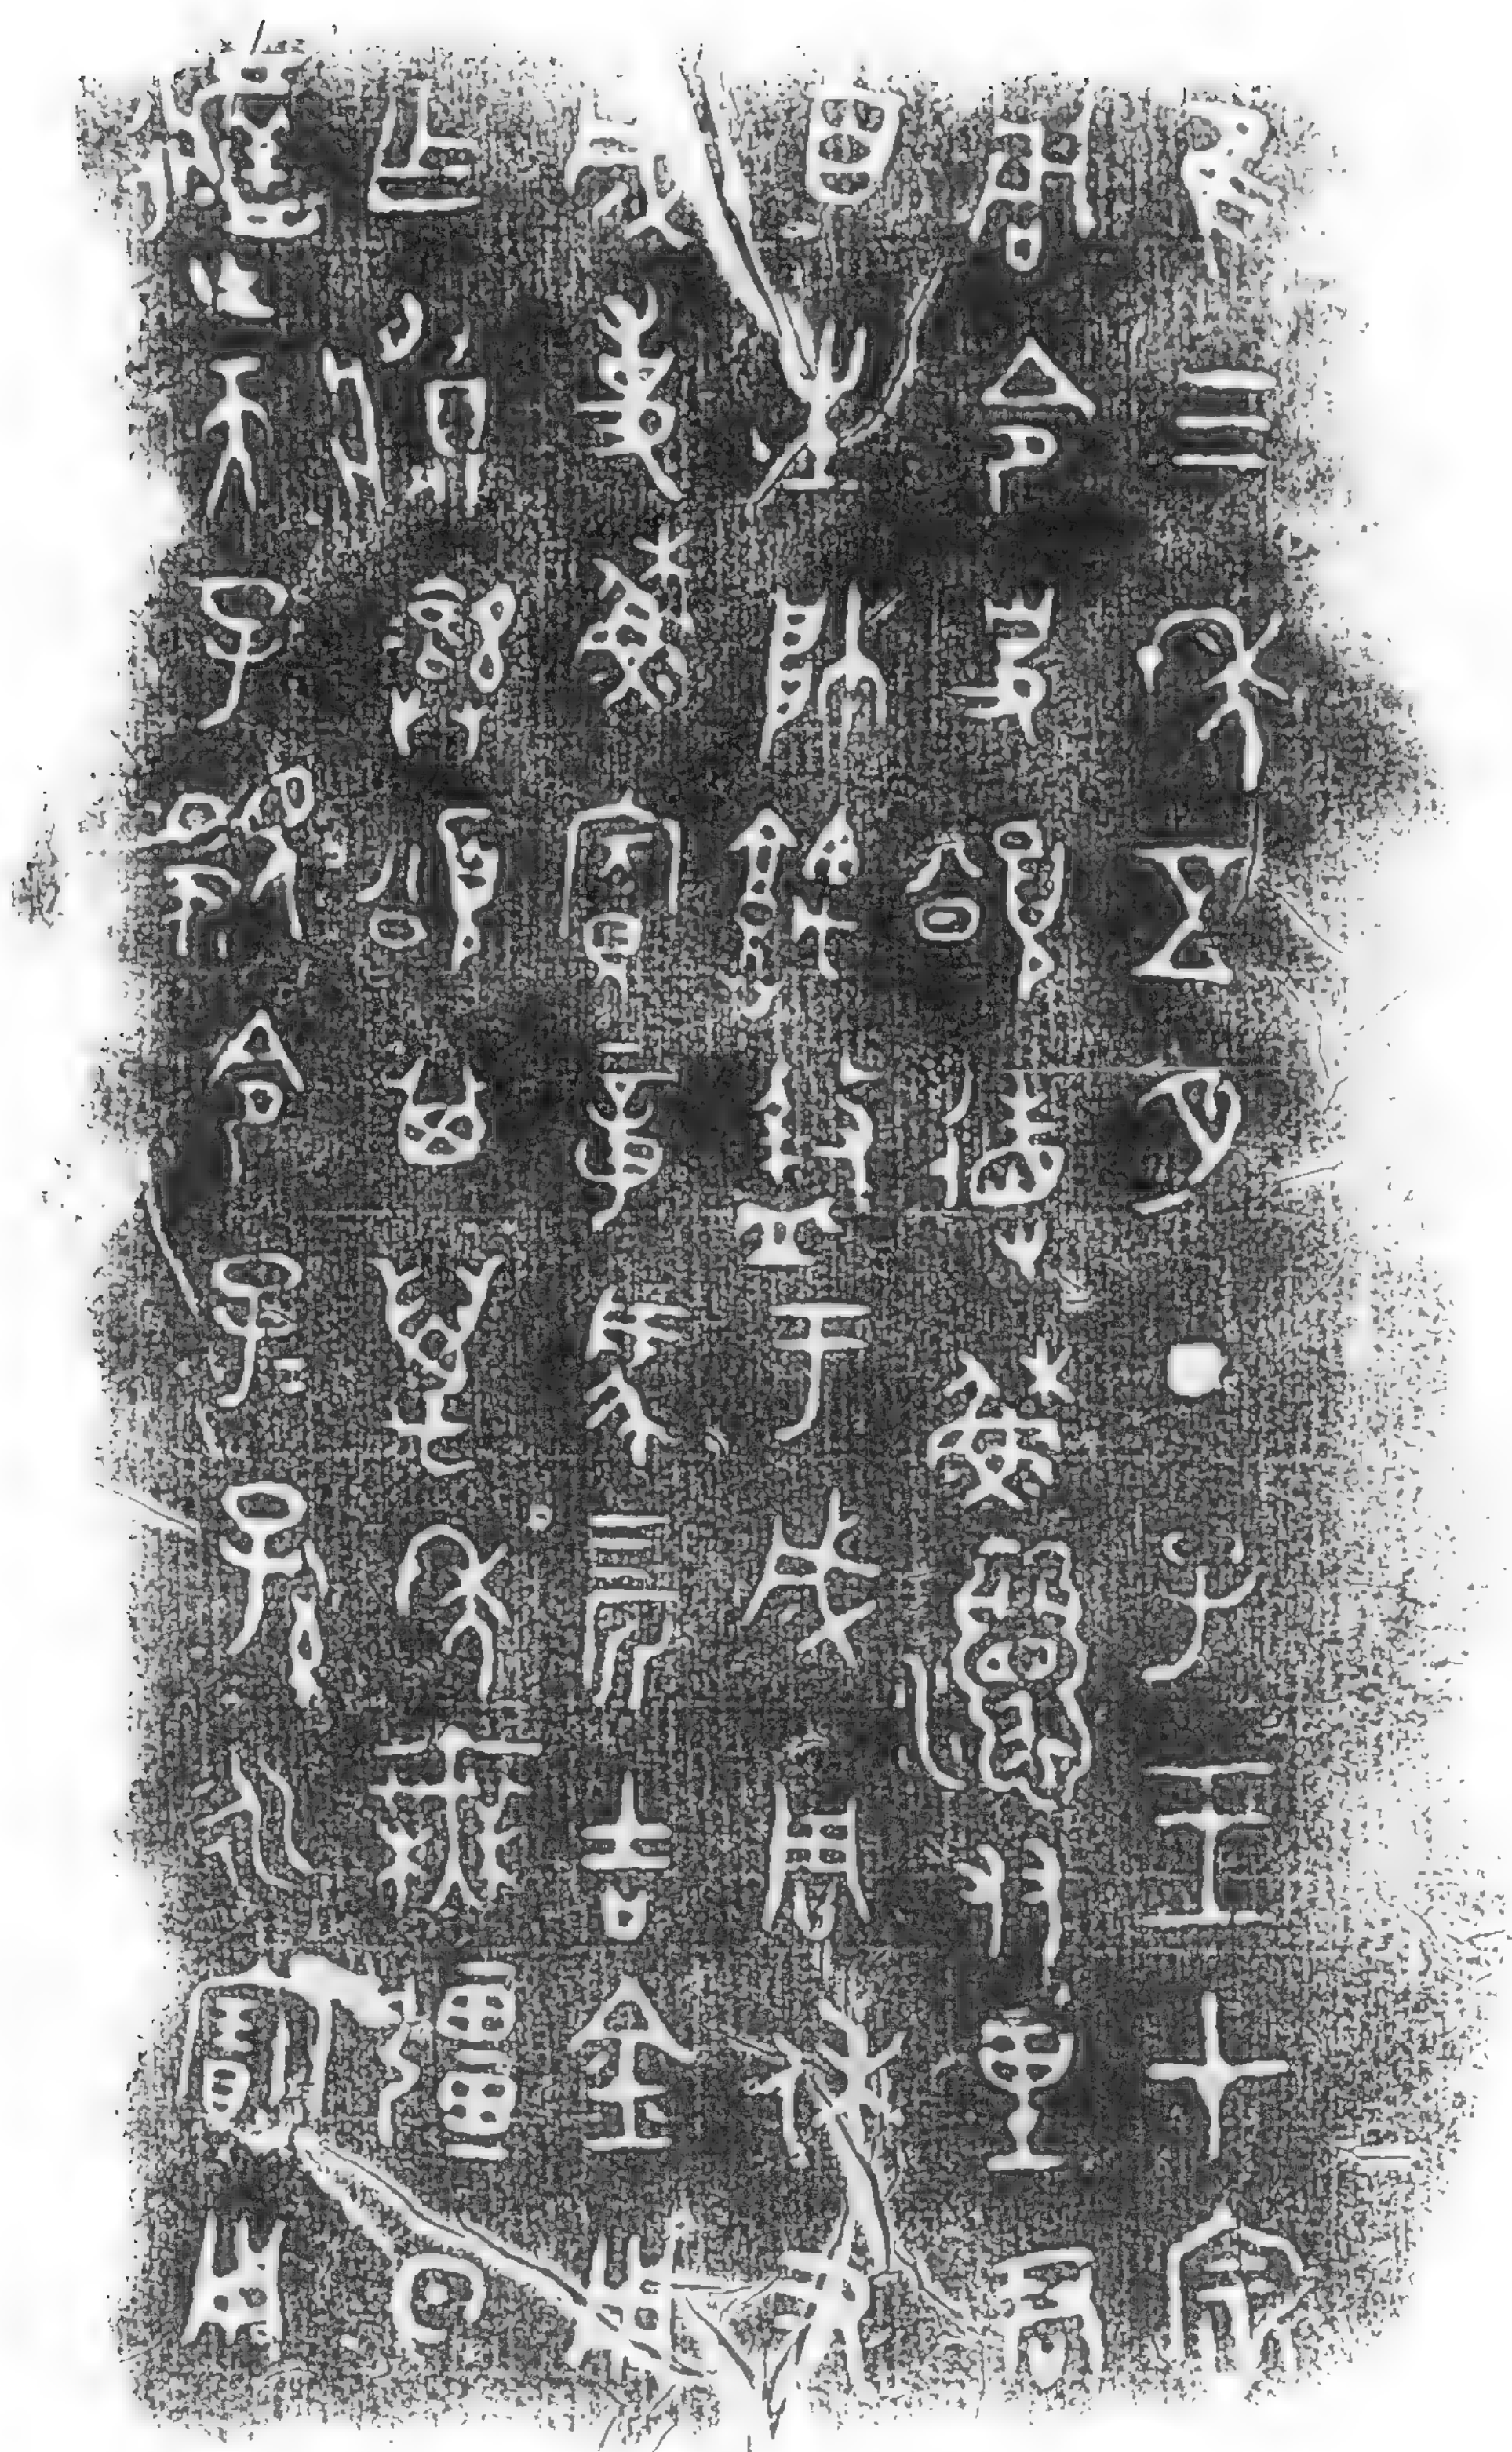 隹三年五月丁巳王才宗
周令史頌省穌𤔲友里君
百生帥𩛥盩于成周休又
成事穌賓章馬四匹吉金用
乍𩰫彝頌其萬年無疆日
𨒪天子顯令子=孫=永寶用